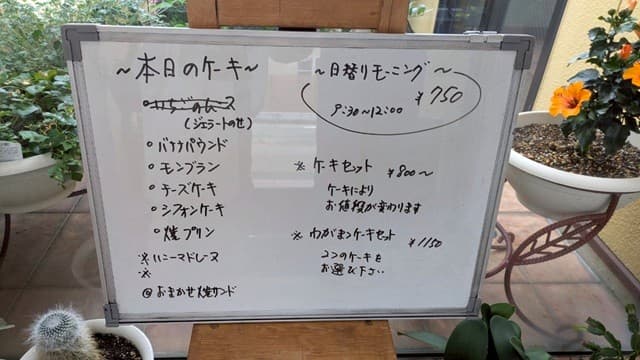 ～本日のケーキ～
いちごのムース
(ジェラートのせ)
○バナナパウンド
○モンブラン
○チーズケーキ
○シフォンケーキ
○焼プリン
※ハニーマドレーヌ
※
@おまかせ焼サンド
～日替りモーニング～
¥750
9:30～12:00
※ケーキセット ¥800～
ケーキにより
お値段が変わります
※わがまマケーキセット ¥1150
2つのケーキを
お選び下さい